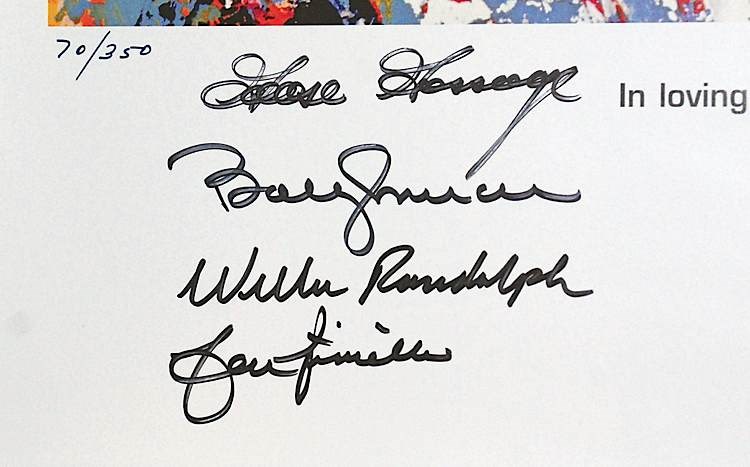 70/350
Goose Gossage
In loving
Bobby Murcer
Willie Randolph
Lou Piniella